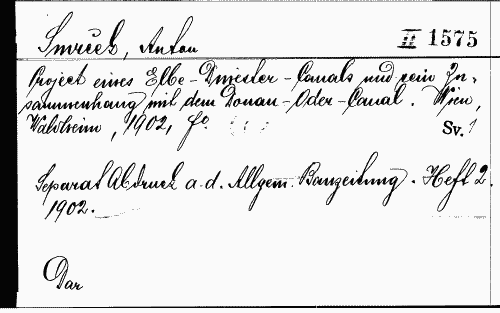 Smrček, Anton
II 1575
Project eines Elbe-Dniester-Canals und sein Zu-
sammenhang mit dem Donau-Oder-Canal. Wien,
Waldheim, 1902, fo.
Sv. 1
Separat Abdruck a. d. Allgem. Bauzeitung. Heft 2.
1902.
Dar